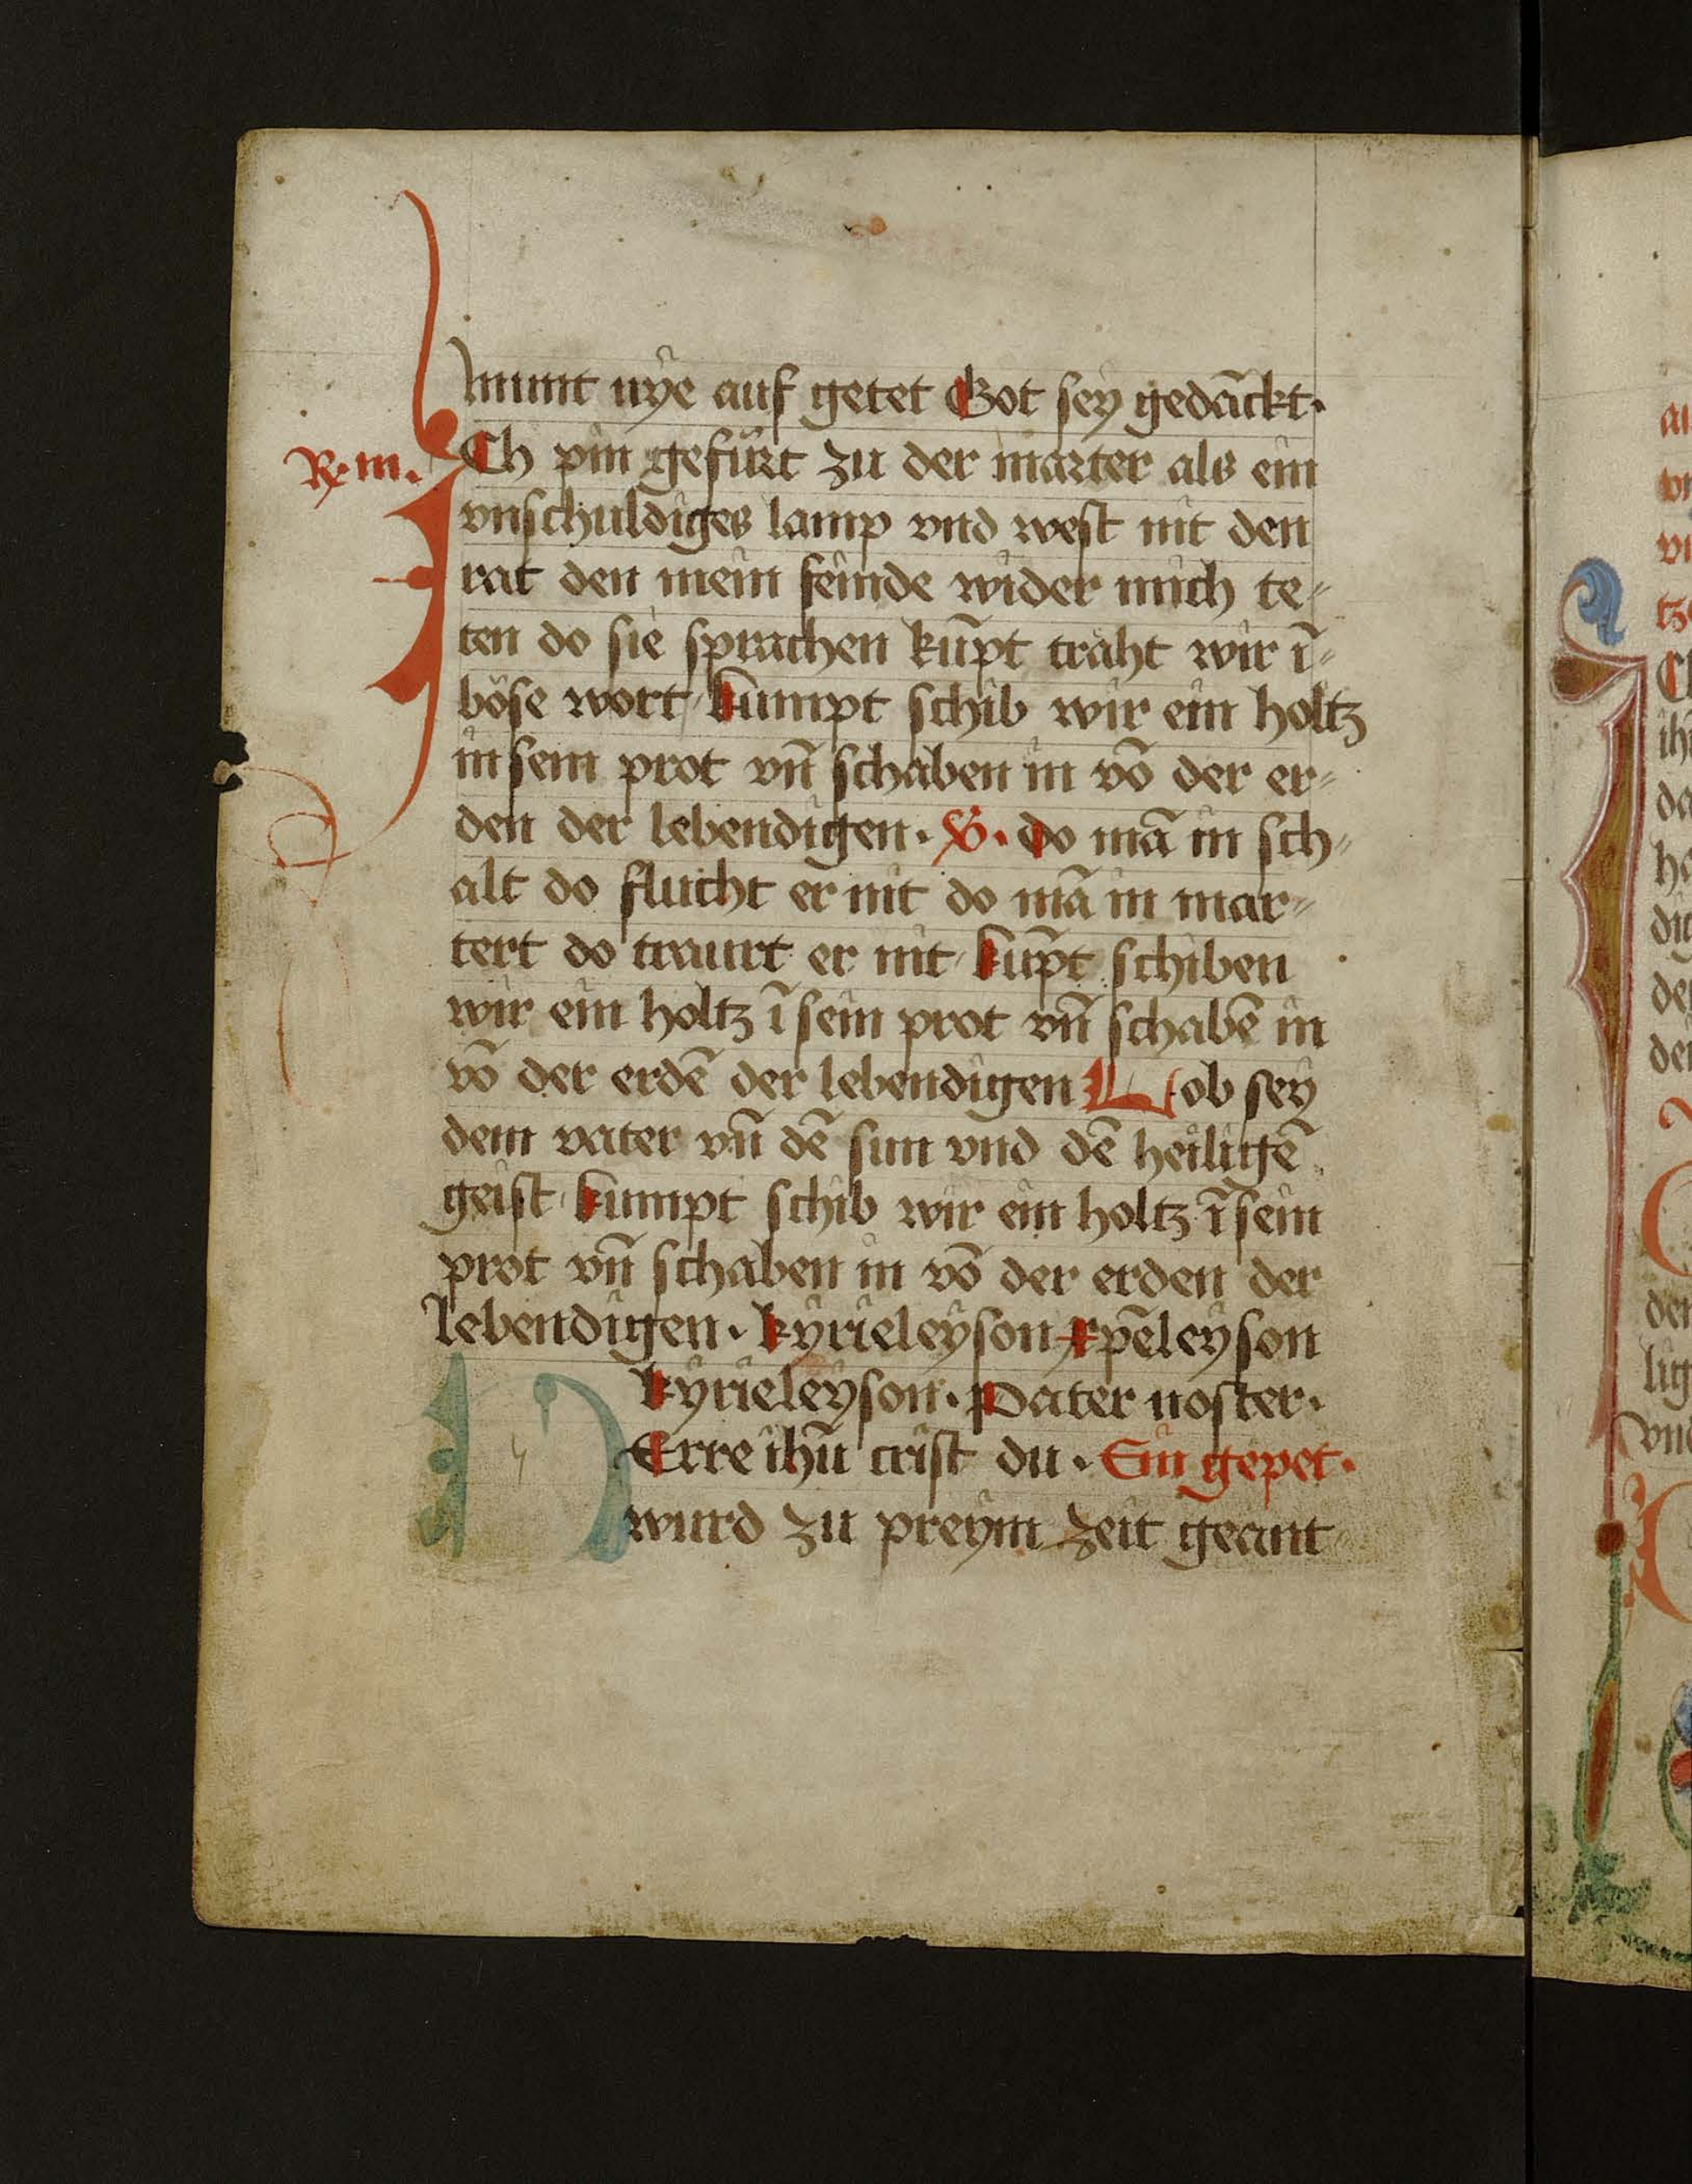 munt nye auf getet Got sey gedāckt·
R· m. ICh pin gefürt zu der marter als ein
vnschuldiges lamp vnd west nit den
rat den mein feinde wider mich te⸗
ten do sie sprachen kūpt traht wir ī⸗
böse wort / kumpt schib wir ein holtz
in sein prot vn̄ schaben in vō der er⸗
den der lebendigen · V · do mā in sch⸗
alt do flucht er nit do mā in mar⸗
tert do traurt er nit · kūpt schiben
wir ein holtz ī sein prot vn̄ schabē in
vō der erdē der lebendigen Lob sey
dem vater vn̄ dē sun vnd dē heiligē
geist · kumpt schib wir ein holtz ī sein
prot vn̄ schaben in vō der erden der
lebendigen · kyrieleyson xp̄eleyson
kyrieleyson · Pater noster ·
HErre ihū crist du · Ein gepet ·
wurd zu preym zeit geant⸗